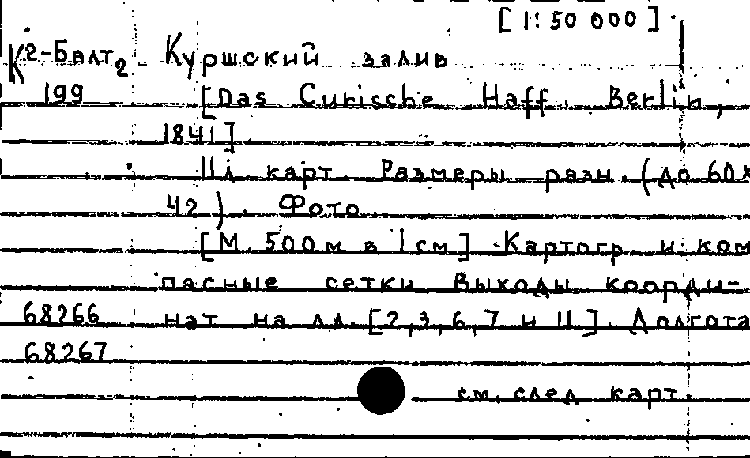 [1:50 000]
К2-Балт2 Куршский залив
199 [Das Curische Haff. Berlin,
1841]
11 л карт. Размеры разн. (до 60х
42). Фото
[М. 500м в 1см] Картогр. и ком
пасные сетки Выходы коорди-
68266 нат на лл. [2,3,6,7 и 11]. Долгота
68267
см. след карт.